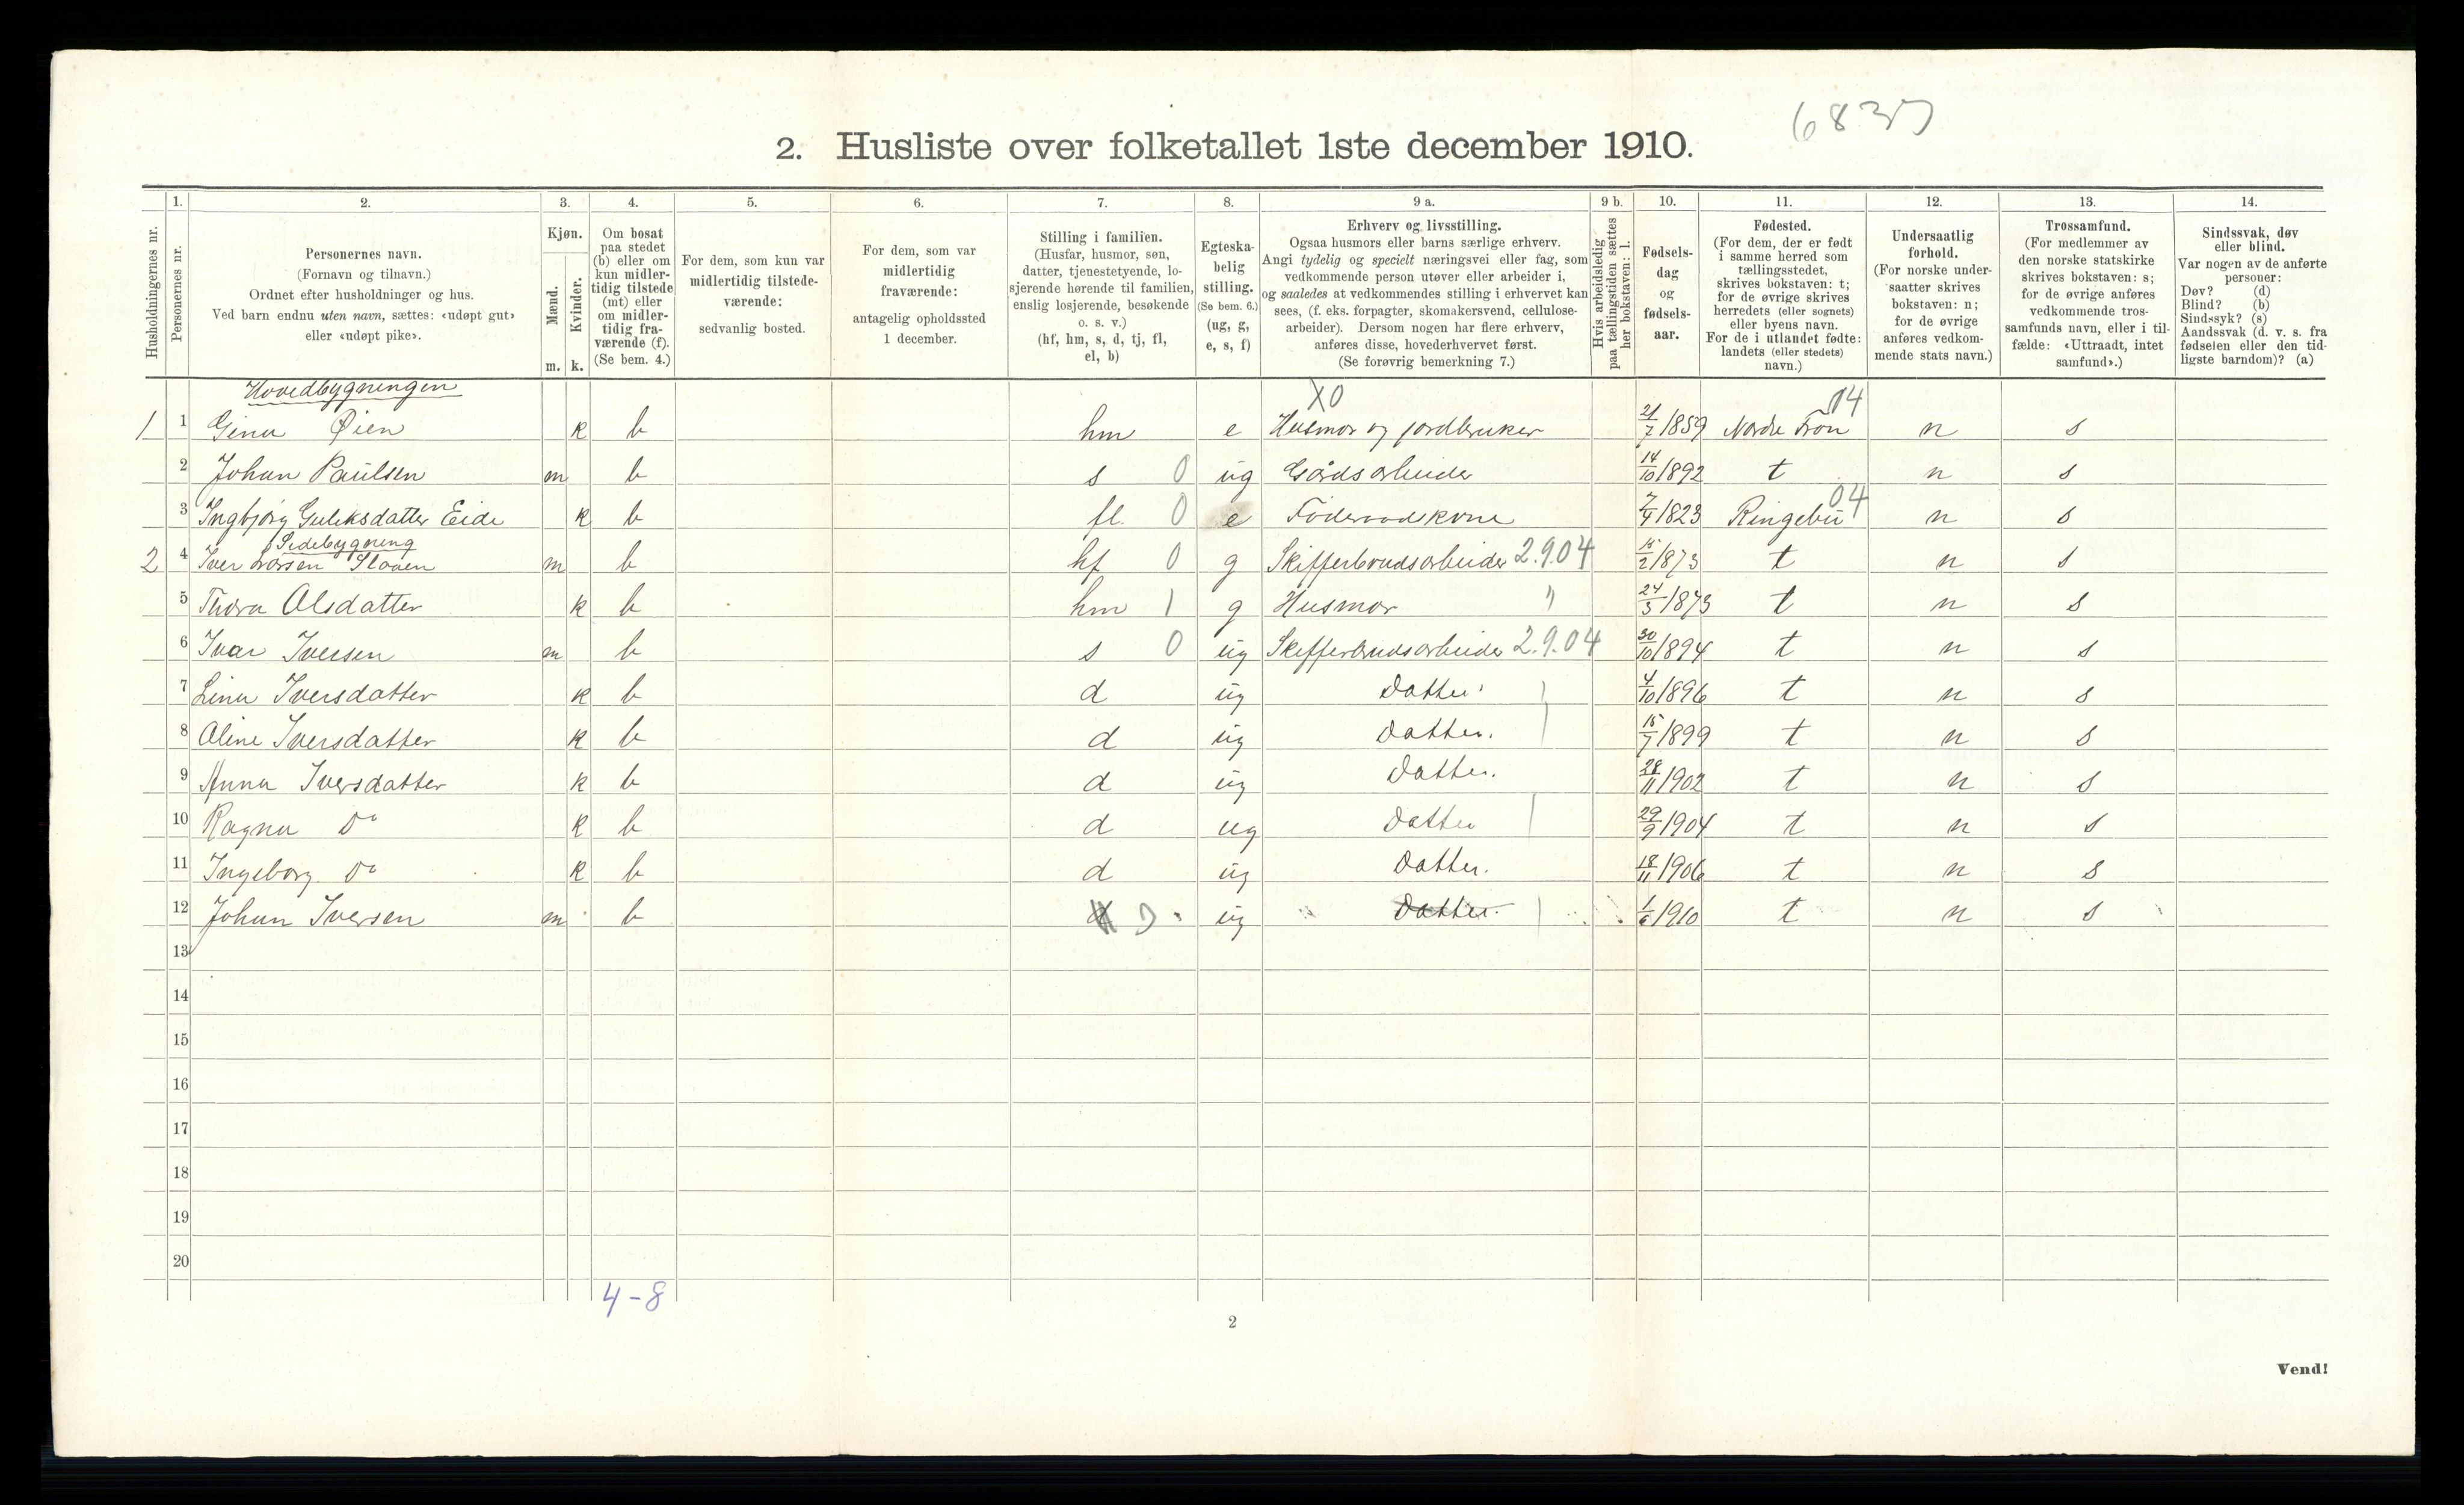 6837
2. Husliste over folketallet 1ste december 1910.
Husholdningernes nr.
1.
Personernes nr.
2.
Personernes navn.
(Fornavn og tilnavn.)
Ordnet efter husholdninger og hus.
Ved barn endnu uten navn, sættes: «udøpt gut»
eller «udøpt pike».
3.
Kjøn.
Mænd.
Kvinder.
m. k.
4.
Om bosat
paa stedet
(b) eller om
kun midler-
tidig tilstede
(mt) eller
om midler-
tidig fra-
værende (f).
(Se bem. 4.)
5.
For dem, som kun var
midlertidig tilstede-
værende:
sedvanlig bosted.
6.
For dem, som var
midlertidig
fraværende:
antagelig opholdssted
1 december.
7.
Stilling i familien.
(Husfar, husmor, søn,
datter, tjenestetyende, lo-
sjerende hørende til familien,
enslig losjerende, besøkende
o. s. v.)
(hf, hm, s, d, tj, fl,
el, b)
8.
Egteska-
belig
stilling.
(Se bem. 6.)
(ug, g,
e, s, f)
9 a.
Erhverv og livsstilling.
Ogsaa husmors eller barns særlige erhverv.
Angi tydelig og specielt næringsvei eller fag, som
vedkommende person utøver eller arbeider i,
og saaledes at vedkommendes stilling i erhvervet kan
sees, (f. eks. forpagter, skomakersvend, cellulose-
arbeider). Dersom nogen har flere erhverv,
anføres disse, hovederhvervet først.
(Se forøvrig bemerkning 7.)
9 b.
Hvis arbeidsledig
paa tællingstiden sættes
her bokstaven: l.
10.
Fødsels-
dag
og
fødsels-
aar.
11.
Fødested.
(For dem, der er født
i samme herred som
tællingsstedet,
skrives bokstaven: t;
for de øvrige skrives
herredets (eller sognets)
eller byens navn.
For de i utlandet fødte:
landets (eller stedets)
navn.)
12.
Undersaatlig
forhold.
(For norske under-
saatter skrives
bokstaven: n;
for de øvrige
anføres vedkom-
mende stats navn.)
13.
Trossamfund.
(For medlemmer av
den norske statskirke
skrives bokstaven: s;
for de øvrige anføres
vedkommende tros-
samfunds navn, eller i til-
fælde: «Uttraadt, intet
samfund».)
14.
Sindssvak, døv
eller blind.
Var nogen av de anførte
personer:
Døv? (d)
Blind? (b)
Sindssyk? (s)
Aandssvak (d. v. s. fra
fødselen eller den tid-
ligste barndom)? (a)
Hovedbygningen X0 04
1 1 Gina Øien k b hm e Husmor og jordbruker 21/7 1859 Nordre Fron n s
2 Johan Paulsen m b s 0 ug Gårdsarbeider 14/10 1892 t n s
04
3 Ingbjørg Guliksdatter Eide k b fl. 0 e Föderaadskone 7/4 1823 Ringebu n s
Sidebygning
2 4 Iver Larsen Sloven m b hf 0 g Skifferbrudsarbeider 2.9.04 15/2 1873 t n s
5 Thora Olsdatter k b hm 1 g Husmor " 24/3 1873 t n s
6 Ivar Iversen m b s 0 ug Skifferbrudsarbeider 2.9.04 30/10 1894 t n s
7 Lina Iversdatter k b d ug Datter 4/10 1896 t n s
8 Oline Iversdatter k b d ug Datter. 15/7 1899 t n s
9 Anna Iversdatter k b d ug Datter. 28/11 1902 t n s
10 Ragna Do k b d ug Datter 29/9 1904 t n s
11 Ingeborg Do k b d ug Datter. 18/11 1906 t n s
12 Johan Iversen m b d ug Datter. 1/6 1910 t n s
13
14
15
16
17
18
19
20
4-8
2
Vend!